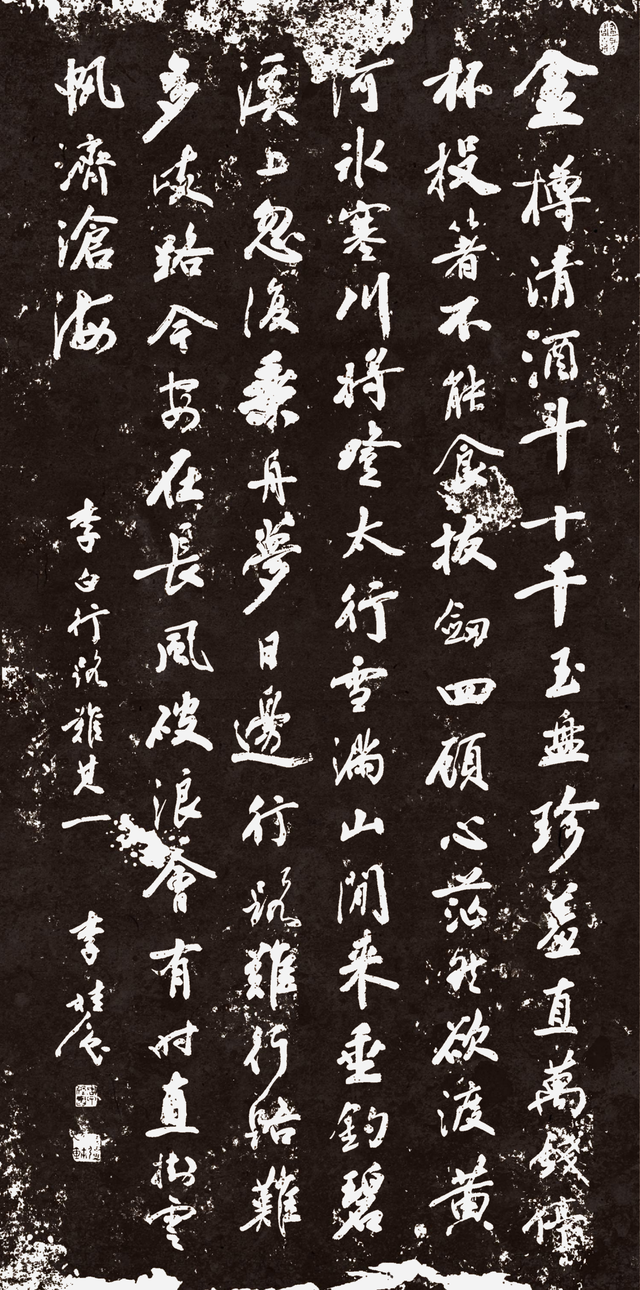 金樽清酒斗十千玉盘珍羞直萬錢停
杯投箸不能食拔劔四顧心茫然欲渡黄
河冰寒川將登太行雪滿山閒来垂釣碧
溪上忽復乘舟夢日邊行路難行路難
多岐路今安在長風破浪會有时直掛雲
帆濟滄海
李白行路難其一
李